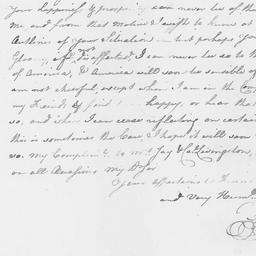 Your happiness & prosperity can never be of th
me, and from that motive I ought to know at
Outlines of your Situation — but perhaps you
Gloomy, off disaffected, I can never be so to th
of America, & America will soon be sensible of
am not chearful, except when I am in the Com
my Friends & find happy, or hear that
so, and when I can cease reflecting on certain
this is sometimes the Case & I hope it will soon
so. my Compliments to Mrs. Jay & Livingston,
on all Occasions my Dear
Yours affectionate Friend
and Very Hum